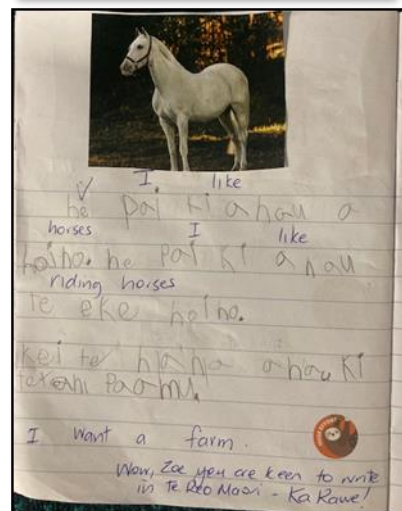 I like
he pai ki ahau a
horses I like
hoiho. he pai ki ahau
riding horses
te eke hoiho.
kei te hiahia ahau ki
tetahi Paamu.
I want a farm.
Wow, Zoe you are keen to write
in Te Reo Maori - Ka Rawe!